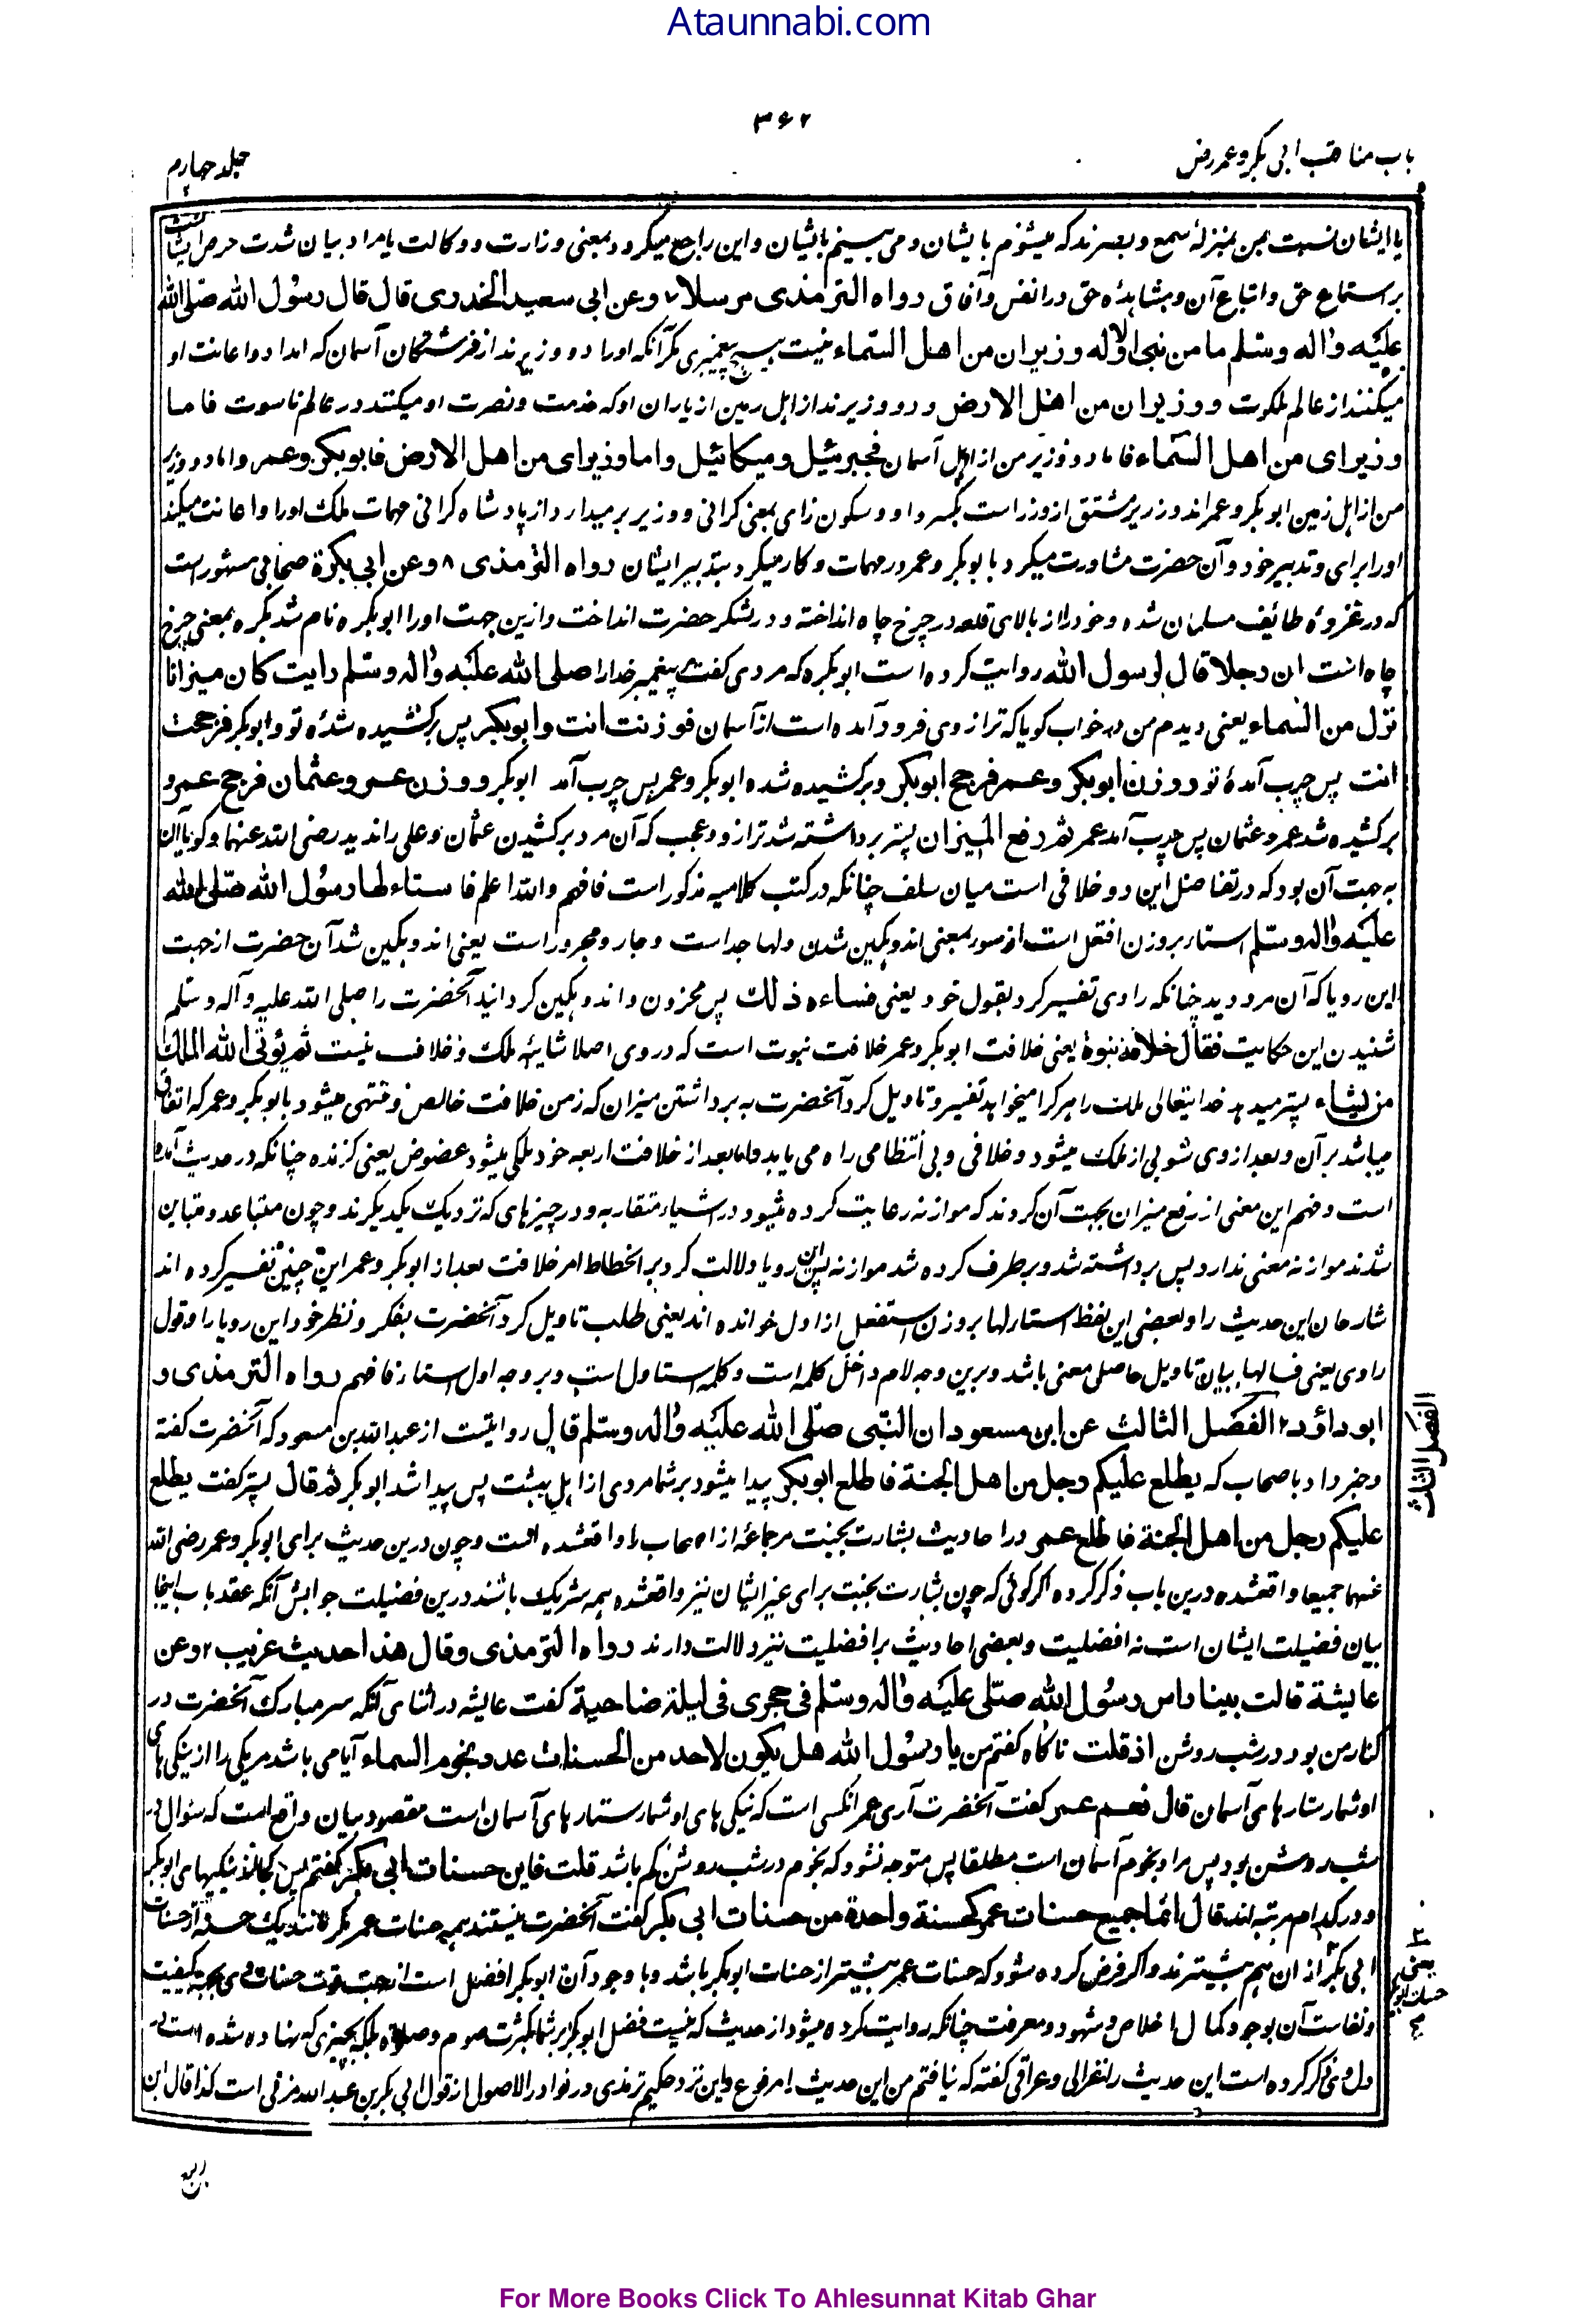 Ataunnabi.com
۳۶۲
باب مناقب ابی بکر و عمر رض
جلد چهارم
یا ایشان نسبت بمن بمنزلهٔ سمع و بصرند که میشنوم بایشان و می بینم بایشان و این راجع میگردد بمعنی وزارت و وکالت یا مراد بیان شدت حرص ایشانست
بر استماع حق و اتباع آن و مشاهدهٔ حق در انفس و آفاق رواه الترمذی مرسلا ۷ وعن ابی سعید الخدری قال قال رسول الله صلی الله
علیه واله وسلم ما من نبی الا وله وزیران من اهل السماء نیست هیچ پیغمبری مگر آنکه او را دو وزیرند از فرشتگان آسمان که امداد و اعانت او
میکنند از عالم ملکوت ووزیران من اهل الارض و دو وزیرند از اهل زمین از یاران او که خدمت و نصرت او میکنند در عالم ناسوت فاما
وزیرای من اهل السماء فاما دو وزیر من از اهل آسمان فجبرئیل ومیکائیل واما وزیرای من اهل الارض فابوبکر وعمر و اما دو وزیر
من از اهل زمین ابوبکر و عمر اند و وزیر مشتق از وزر است بکسر واو و سکون زای بمعنی گرانی و وزیر بر میدارد از پادشاه گرانی مهمات ملک او را و اعانت میکند
او را برای و تدبیر خود و آن حضرت مشاورت میکرد با بوبکر و عمر در مهمات و کار میکرد بتدبیر ایشان رواه الترمذی ۸ وعن ابی بکرة صحابی مشهور است
که در غزوهٔ طائف مسلمان شده و خود را از بالای قلعه در چرخ چاه انداخته و در لشکر حضرت انداخت و ازین جهت او را ابوبکره نام شد بکره بمعنی چرخ
چاه است ان رجلا قال لرسول الله روایت کرده است ابوبکره که مردی گفت پیغمبر خدا را صلی الله علیه واله وسلم رایت کان میزانا
نزل من السماء یعنی دیدم من در خواب گویا که ترازوی فرود آمده است از آسمان فوزنت انت وابوبکر پس برکشیده شدهٔ تو و ابوبکر فرجحت
انت پس چرب آمدهٔ تو ووزن ابوبکر وعمر فرجح ابوبکر و برکشیده شده ابوبکر و عمر پس چرب آمد ابوبکر ووزن عمر وعثمان فرجح عمر و
برکشیده شد عمر و عثمان پس چرب آمد عمر ثم رفع المیزان پستر برداشته شد ترازو و عجب که آن مرد برکشیدن عثمان و علی را ندید رضی الله عنهما و گویا این
به جهت آن بود که در تفاضل این دو خلافی است میان سلف چنانکه در کتب کلامیه مذکور است فافهم والله اعلم فاستاء لها رسول الله صلی الله
علیه واله وسلم استاء بروزن افتعل است از سوء بمعنی اندوهگین شدن و لها جداست و جار و مجرور است یعنی اندوهگین شد آن حضرت از جهت
این رویا که آن مرد دید چنانکه راوی تفسیر کرد بقول خود یعنی فساءه ذلک پس محزون و اندوهگین گردانید آنحضرت را صلی الله علیه و آله و سلم
شنیدن این حکایت فقال خلافة نبوة یعنی خلافت ابوبکر و عمر خلافت نبوت است که در وی اصلا شایبهٔ ملک و خلاف نیست ثم یؤتی الله الملک
من یشاء پستر میدهد خدایتعالی ملک را هر کرا میخواهد تفسیر و تاویل کرد آنحضرت به برداشتن میزان که زمن خلافت خالص و منتهی میشود بابوبکر و عمر که اتفاقی
میباشد بر آن و بعد از وی شوبی از ملک میشود و خلافی و بی انتظامی راه می یابد و اما بعد از خلافت اربعه خود ملکی میشود عضوض یعنی گزنده چنانکه در حدیث آمده
است و فهم این معنی از رفع میزان بجهت آن کردند که موازنه رعایت کرده میشود در اشیاء متقاربه و در چیزهای که نزدیک یکدیگرند و چون متباعد و متباین
شدند موازنه معنی ندارد پس برداشته شد و برطرف کرده شد موازنه پس این رویا دلالت کرد بر انحطاط امر خلافت بعد از ابوبکر و عمر این چنین تفسیر کرده اند
شارحان این حدیث را و بعضی این لفظ استاء لها بروزن استفعل از اول خوانده اند یعنی طلب تاویل کرد آنحضرت بفکر و نظر خود این رویا را و قول
راوی یعنی فسالها بیان تاویل حاصلی معنی باشد و برین وجه لام داخل کلمه است و کلمه استاول است و بر وجه اول استاء فافهم رواه الترمذی و
ابوداؤد ۲ الفصل الثالث عن ابن مسعود ان النبی صلی الله علیه واله وسلم قال روایتست از عبدالله بن مسعود که آنحضرت گفته
و خبر داد باصحاب که یطلع علیکم رجل من اهل الجنة فاطلع ابوبکر پیدا میشود بر شما مردی از اهل بهشت پس پیدا شد ابوبکر ثم قال پستر گفت یطلع
علیکم رجل من اهل الجنة فاطلع عمر در احادیث بشارت بجنت مر جماعه از اصحاب را واقع شده است و چون درین حدیث برای ابوبکر و عمر رضی الله
عنهما جمیعا واقع شده درین باب ذکر کرده اگر گوئی که چون بشارت بجنت برای غیر ایشان نیز واقع شده همه شریک باشند درین فضیلت جوابش آنکه عقد باب اینجا
بیان فضیلت ایشان است نه افضلیت و بعضی احادیث بر افضلیت نیز دلالت دارند رواه الترمذی وقال هذا حدیث غریب ۲ وعن
عایشة قالت بینا راس رسول الله صلی علیه واله وسلم فی حجری فی لیلة ضاحیة گفت عایشه در اثنای آنکه سر مبارک آنحضرت در
کنار من بود در شب روشن اذ قلت ناگاه گفتم من یا رسول الله هل یکون لاحد من الحسنات عدد نجوم السماء آیا می باشد مر یکی را از نیکی های
او شمار ستارهای آسمان قال نعم عمر گفت آنحضرت آری عمر آنکسی است که نیکی های او شمار ستارهای آسمان است مقصود بیان واقع است که سؤال در
شب روشن بود پس مراد نجوم آسمان است مطلقا پس متوجه نشود که نجوم در شب روشن کم باشد قلت فاین حسنات ابی بکر گفتم پس کجااند نیکیهای ابوبکر
و در کدام مرتبه اند قال انما جمیع حسنات عمر کحسنة واحدة من حسنات ابی بکر گفت آنحضرت نیستند همه حسنات عمر مگر مانند یک حسنه از حسنات
ابی بکر از ان هم بیشترند و اگر فرض کرده شود که حسنات عمر بیشتر از حسنات ابوبکر باشد و با وجود آن ابوبکر افضل است از جهت قوت حسنات وی بجهت کیفیت
و نفاست آن بوجود کمال اخلاص و شهود و معرفت چنانکه روایت کرده میشود از حدیث که نیست فضل ابوبکر بر شما بکثرت صوم و صلاة بلکه بچیزی که نهاده شده است در
دل وی ذکر کرده است این حدیث را غزالی و عراقی گفته که نیافتم من این حدیث را مرفوع و این نزد حکیم ترمذی در نوادر الاصول از قول ابی بکر بن عبدالله مزنی است کذا قال ابن
الفصل الثالث
یعنی حسنات ابوبکر
For More Books Click To Ahlesunnat Kitab Ghar